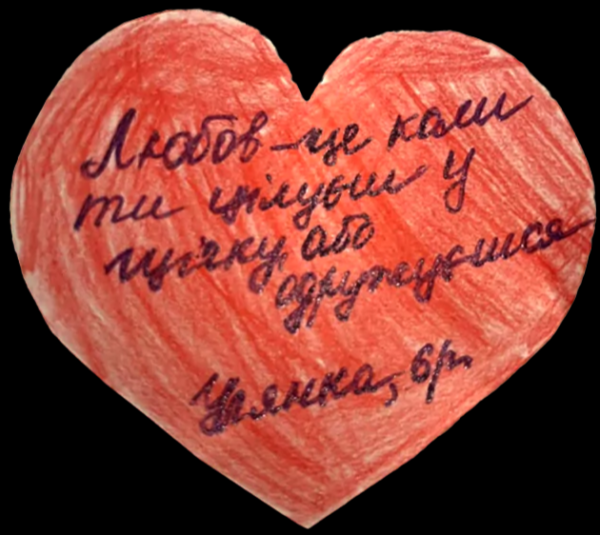 Любов - це коли
ти цілуєш у
щічку або
одружуєшся
Улянка, 6р.